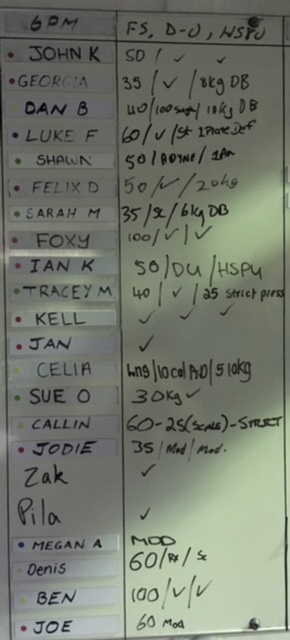 6PM FS, D-U, HSPU
JOHN K 50 / ✓ ✓
GEORGIA 35 / ✓ / 8kg DB
DAN B 40/100 / 10kg DB
LUKE F 60/✓/St 1Plate Def
SHAWN 50 /
FELIX D 50/✓/20kg
SARAH M 35/Sc/6kg DB
FOXY 100/✓/✓
IAN K 50/DU/HSPU
TRACEY M 40/✓/25 Strict press
KELL ✓ ✓ ✓
JAN ✓
CELIA
SUE O 30kg ✓
CALLIN 60-25(SCALE)-STRICT
JODIE 35/Mod/Mod.
Zak ✓
Pila ✓
MEGAN A MOD
Denis 60/Rx/Sc
BEN 100/✓/✓
JOE 60 Mod